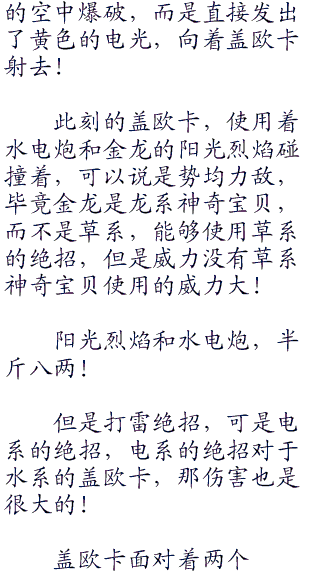 的空中爆破，而是直接发出
了黄色的电光，向着盖欧卡
射去！
此刻的盖欧卡，使用着
水电炮和金龙的阳光烈焰碰
撞着，可以说是势均力敌，
毕竟金龙是龙系神奇宝贝，
而不是草系，能够使用草系
的绝招，但是威力没有草系
神奇宝贝使用的威力大！
阳光烈焰和水电炮，半
斤八两！
但是打雷绝招，可是电
系的绝招，电系的绝招对于
水系的盖欧卡，那伤害也是
很大的！
盖欧卡面对着两个